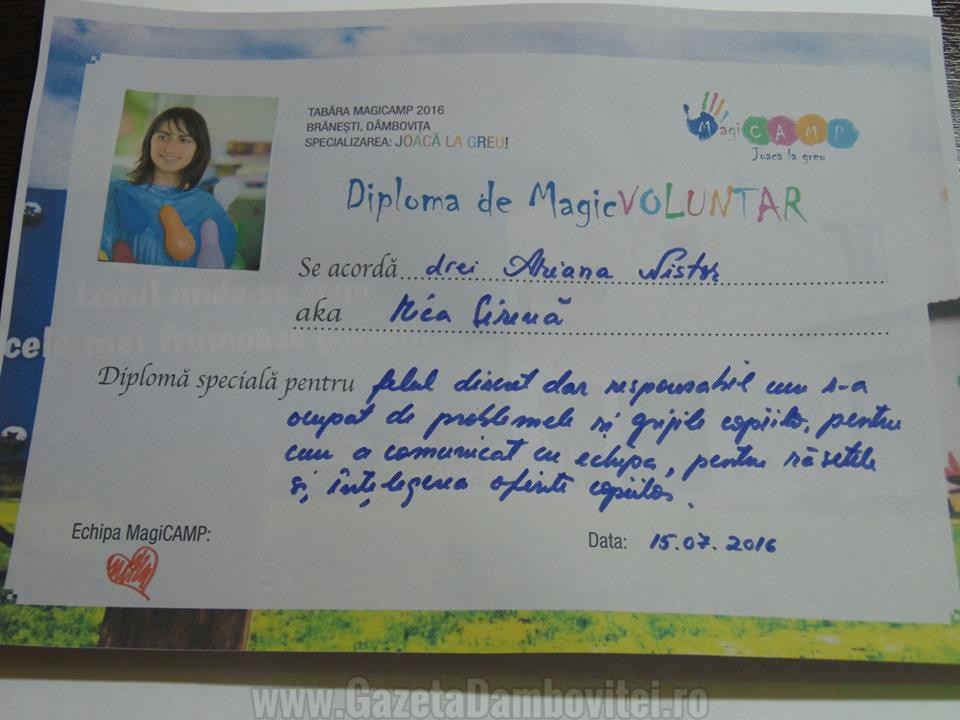 TABĂRA MAGICAMP 2016
BRĂNEȘTI, DÂMBOVIȚA
SPECIALIZAREA: JOACĂ LA GREU!
MagiCAMP
Joaca la greu
Diploma de MagicVOLUNTAR
Se acordă drei Ariana Nistor
aka Mica Sirenă
Locul unde se spun
cele mai frumoase povești
Diplomă specială pentru felul discret dar responsabil cum s-a
ocupat de problemele și grijile copiilor, pentru
cum a comunicat cu echipa, pentru râsetele
și înțelegerea oferite copiilor.
Echipa MagiCAMP:
Data: 15.07.2016
www.GazetaDambovitei.ro